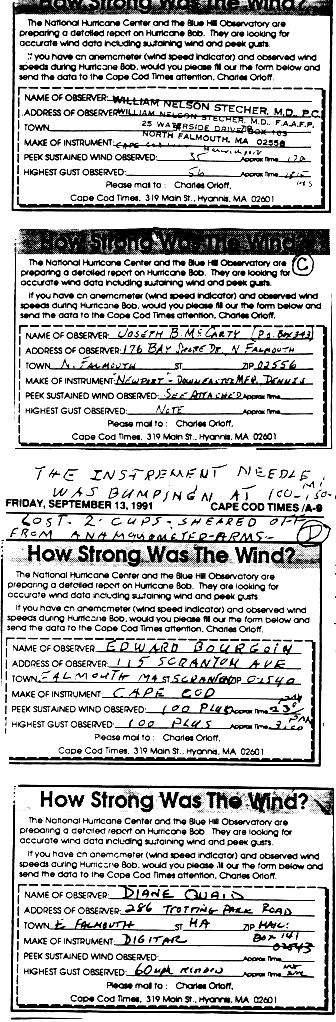 How Strong Was The Wind?
The National Hurricane Center and the Blue Hill Observatory are
preparing a detailed report on Hurricane Bob. They are looking for
accurate wind data including sustaining wind and peek gusts.
If you have an anemcmeter (wind speed indicator) and observed wind
speeds during Hurricane Bob, would you please fill our the form below and
send the data to the Cape Cod Times attention, Charles Orloff.
NAME OF OBSERVER: WILLIAM NELSON STECHER, M.D., P.C.
ADDRESS OF OBSERVER: WILLIAM NELSON STECHER, M.D., F.A.A.F.P.
TOWN 25 WATERSIDE DRIVE/BOX 103
NORTH FALMOUTH, MA 02556
MAKE OF INSTRUMENT: CAPE COD
PEEK SUSTAINED WIND OBSERVED: 35 Approx Time
HIGHEST GUST OBSERVED: 56 Approx Time
Please mail to : Charles Orloff,
Cape Cod Times, 319 Main St., Hyannis, MA 02601
How Strong Was The Wind?
C
The National Hurricane Center and the Blue Hill Observatory are
preparing a detailed report on Hurricane Bob. They are looking for
accurate wind data including sustaining wind and peek gusts.
If you have an anemcmeter (wind speed indicator) and observed wind
speeds during Hurricane Bob, would you please fill our the form below and
send the data to the Cape Cod Times attention, Charles Orloff.
NAME OF OBSERVER: JOSEPH B. McCARTY (P.O. BOX 343)
ADDRESS OF OBSERVER: 176 BAY SHORE DR. N FALMOUTH
TOWN N. FALMOUTH ST ZIP 02556
MAKE OF INSTRUMENT: NEWPORT - DOWNEASTER MFR. DENNIS
PEEK SUSTAINED WIND OBSERVED: SEE ATTACHED Approx Time
HIGHEST GUST OBSERVED: NOTE Approx Time
Please mail to : Charles Orloff,
Cape Cod Times, 319 Main St., Hyannis, MA 02601
THE INSTREMENT NEEDLE
WAS BUMPINGN AT 100-150-
FRIDAY, SEPTEMBER 13, 1991 CAPE COD TIMES /A-9
LOST - 2 - CUPS - SHEARED OFF
FROM ANAMOMETER-ARMS- D
How Strong Was The Wind?
The National Hurricane Center and the Blue Hill Observatory are
preparing a detailed report on Hurricane Bob. They are looking for
accurate wind data including sustaining wind and peek gusts.
If you have an anemcmeter (wind speed indicator) and observed wind
speeds during Hurricane Bob, would you please fill our the form below and
send the data to the Cape Cod Times attention, Charles Orloff.
NAME OF OBSERVER: EDWARD BOURGOIN
ADDRESS OF OBSERVER: 115 SCRANTON AVE
TOWN FALMOUTH MA ST SCRANTON ZIP 02540
MAKE OF INSTRUMENT: CAPE COD
PEEK SUSTAINED WIND OBSERVED: 100 PLUS Approx Time
HIGHEST GUST OBSERVED: 100 PLUS Approx Time
Please mail to : Charles Orloff,
Cape Cod Times, 319 Main St., Hyannis, MA 02601
How Strong Was The Wind?
The National Hurricane Center and the Blue Hill Observatory are
preparing a detailed report on Hurricane Bob. They are looking for
accurate wind data including sustaining wind and peek gusts.
If you have an anemcmeter (wind speed indicator) and observed wind
speeds during Hurricane Bob, would you please fill our the form below and
send the data to the Cape Cod Times attention, Charles Orloff.
NAME OF OBSERVER: DIANE QUAID
ADDRESS OF OBSERVER: 286 TROTTING PARK ROAD
TOWN E FALMOUTH ST MA ZIP MAIL:
MAKE OF INSTRUMENT: DIGITAR BOX 141
02543
PEEK SUSTAINED WIND OBSERVED: Approx Time
HIGHEST GUST OBSERVED: 60 mph Approx Time
Please mail to : Charles Orloff,
Cape Cod Times, 319 Main St., Hyannis, MA 02601